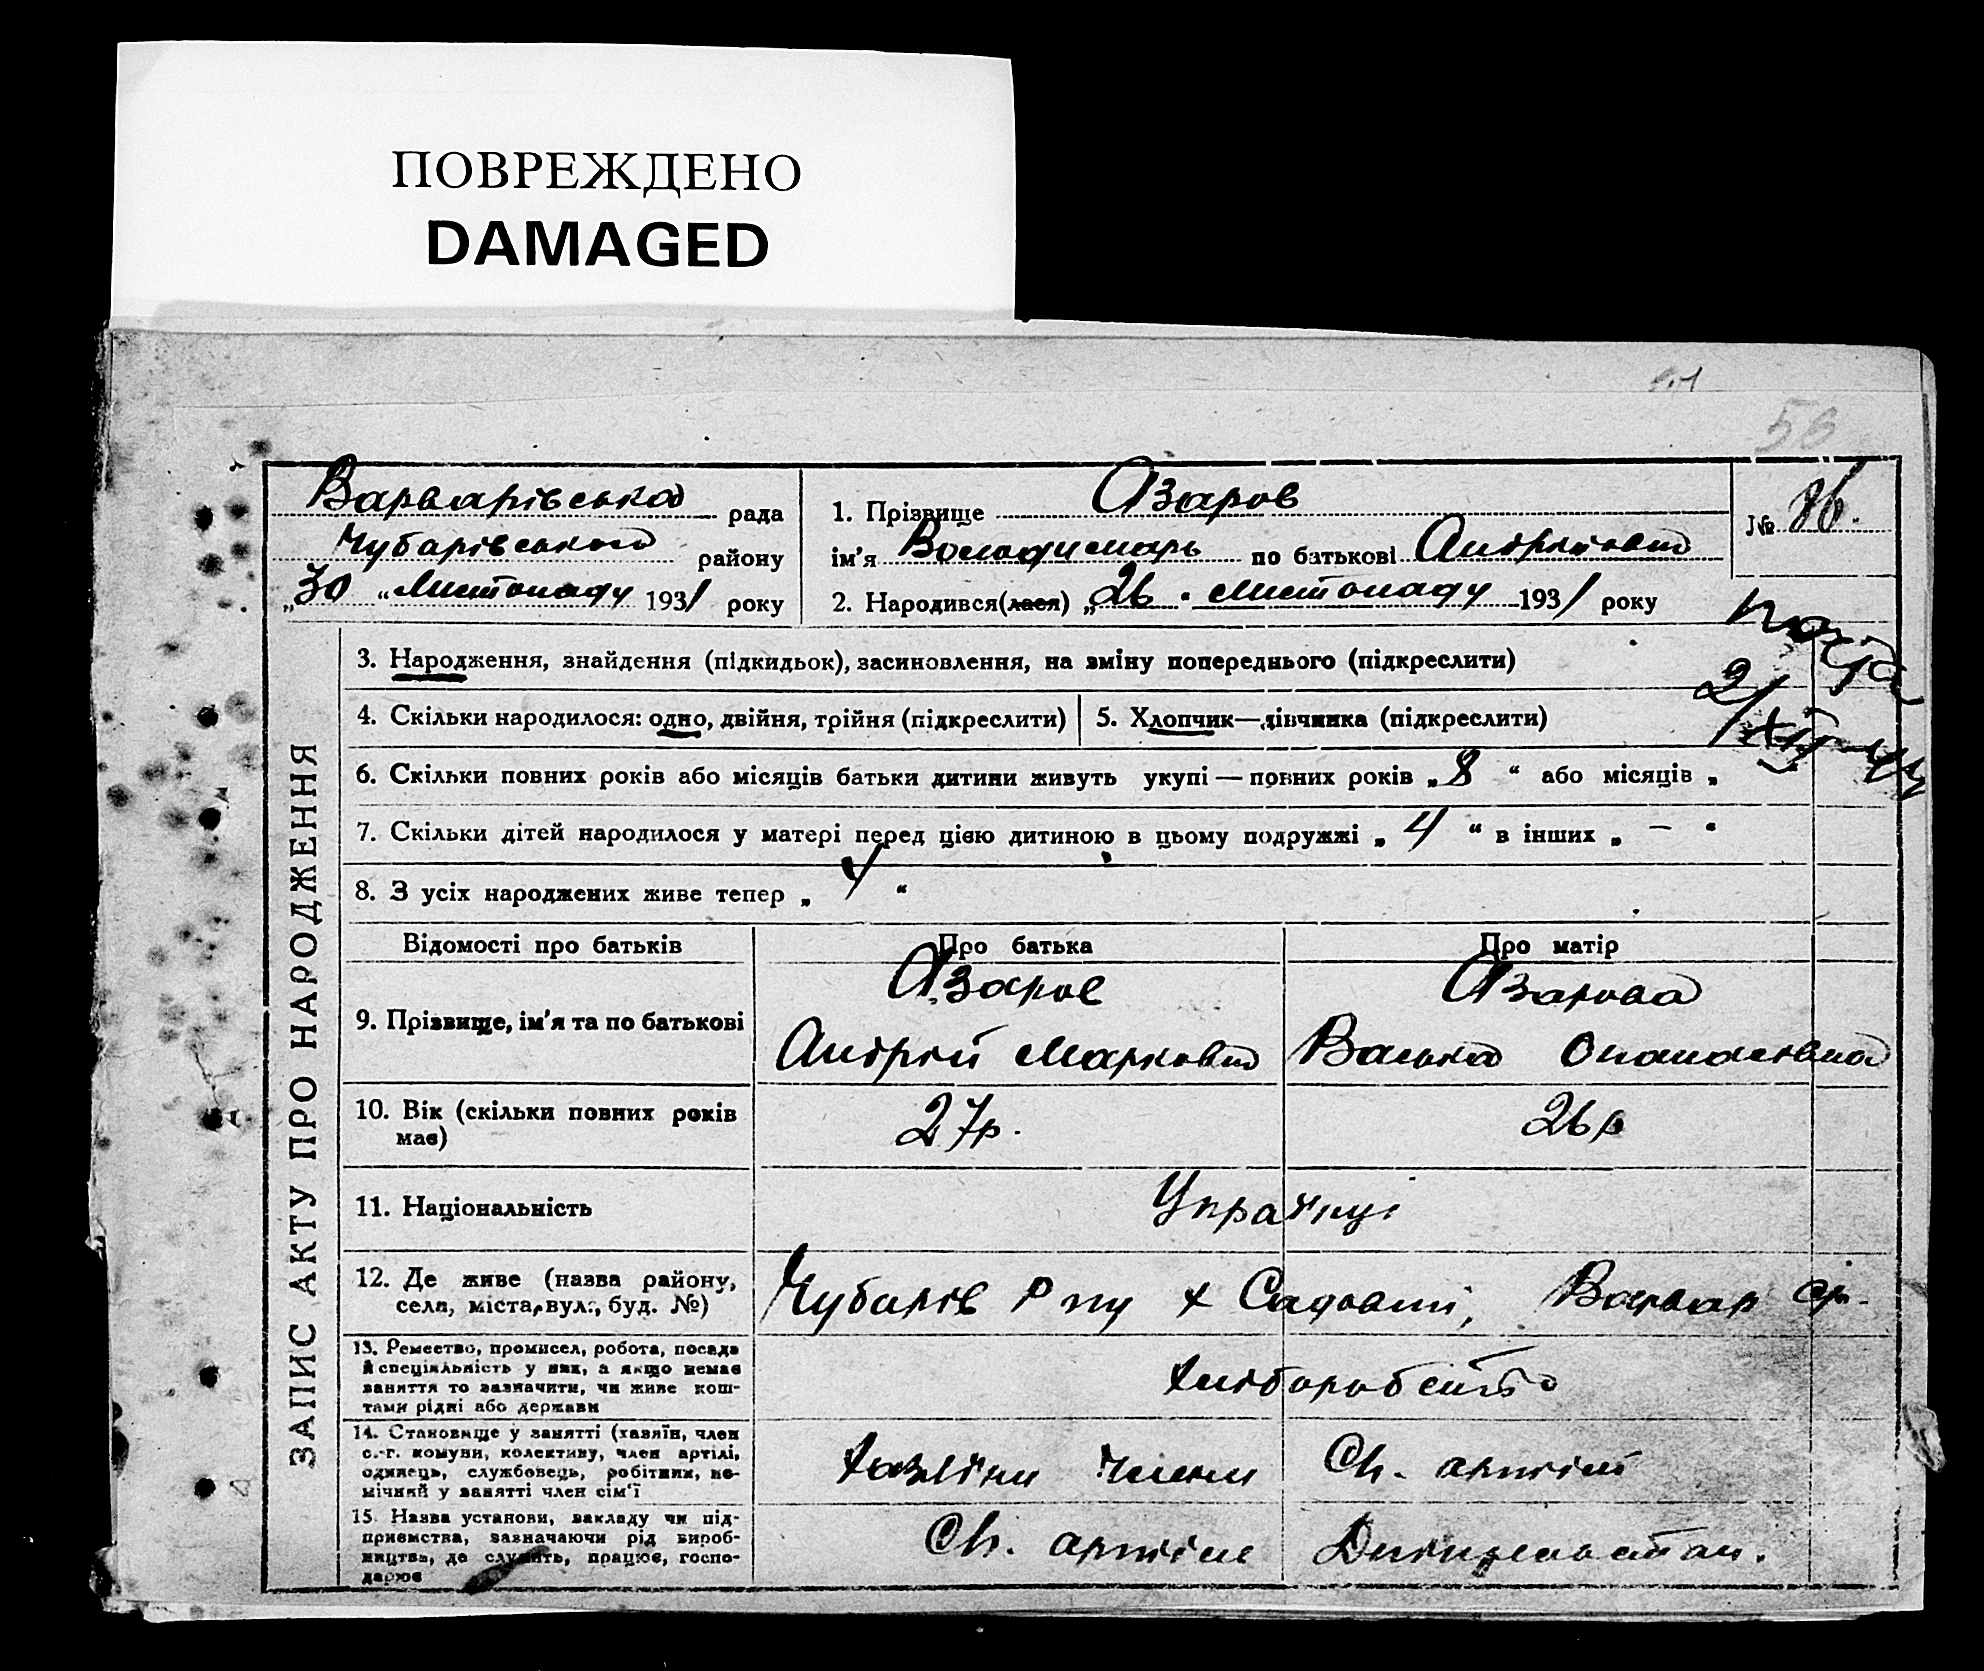 ПОВРЕЖДЕНО
DAMAGED
56
Варварівська рада
Чубарівського району
„30 “ Листопаду 1931 року
1. Прізвище Азаров
ім’я Володимарь по батькові Андрійович
2. Народився(лася) „26 “ Листопаду 1931 року
№ 86.
3. Народження, знайдення (підкидьок), засиновлення, на зміну попереднього (підкреслити)
4. Скільки народилося: одно, двійня, трійня (підкреслити)
5. Хлопчик—дівчинка (підкреслити)
6. Скільки повних років або місяців батьки дитини живуть укупі — повних років „ 8 “ або місяців „
7. Скільки дітей народилося у матері перед цією дитиною в цьому подружжі „ 4 “ в інших „ — “
8. З усіх народжених живе тепер „ 4 “
ЗАПИС АКТУ ПРО НАРОДЖЕННЯ
Відомості про батьків
Про батька
Про матір
9. Прізвище, ім’я та по батькові
Азаров
Андрій Маркович
Азарова
Васька Опанасовна
10. Вік (скільки повних років
має)
27р.
26р
11. Національність
Українці
12. Де живе (назва району,
села, міста, вул., буд. №)
Чубарів Р ну х Садовий, Варвар с/р.
13. Ремество, промисел, робота, посада
й спеціяльність у них, а якщо немає
заняття то зазначити, чи живе кош-
тами рідні або держави
Хліборобство
14. Становище у занятті (хазяїн, член
с.-г. комуни, колективу, член артілі,
одинець, службовець, робітник, по-
мічний у занятті член сім’ї
Хазяїни члени Сг. артілі
15. Назва установи, закладу чи під-
приємства, зазначаючи рід вироб-
ництва, де служить, працює, госпо-
дарює
Сг. артіль